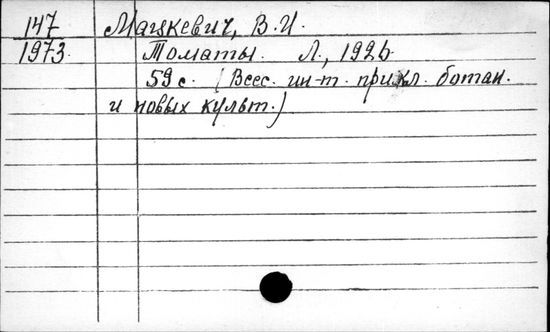 147 Мацкевич, В.И.
1973. Томаты. Л., 1926.
59 с. (Всес. ин-т. прикл. ботан.
и новых культ.)